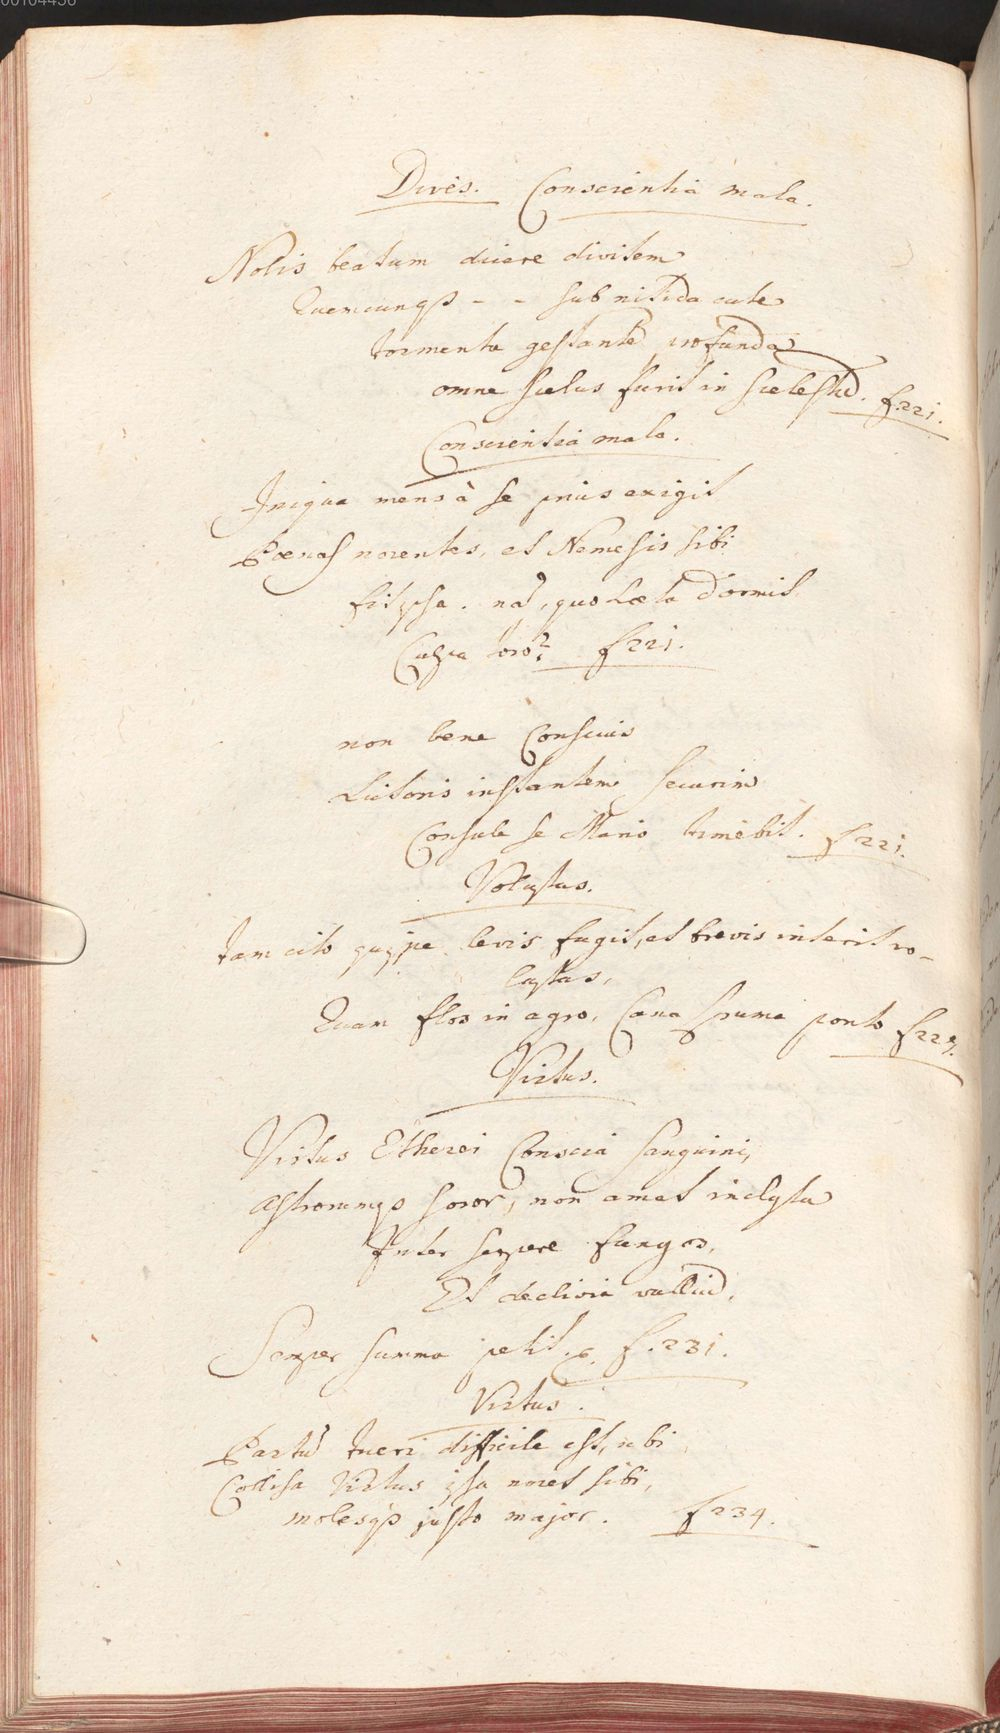 00104456
Dives. Conscientia mala.
Nolis beatum dicere divitem
Quemcunq₃ - - sub nitida cute
tormenta gestantē profunda
omne scelus furit in scelestū. f. 221.
Conscientia mala.
Iniqua mens à se prius exigit
Pœnas nocentes, et Nemesis sibi
fit ipsa. nā, quo læta dormit
Culpa toro? f 221.
non bene Conscius
Lictoris instantem securim
Consule se Mario timebit. f 221.
Voluptas.
tam cito quippe levis fugit, et brevis interit vo-
luptas,
Quam flos in agro, Cana spuma ponto f 229.
Virtus.
Virtus Etherei Conscia sanguinis,
astrorumq₃ soror, non amat inclyta
Inter serpere fungos,
Et declivia valliū,
Semper summa petit. f. 231.
Virtus.
Partū tueri difficile est, ubi
Collisa Virtus ipsa nocet sibi,
molesq₃ justo major. f 234.